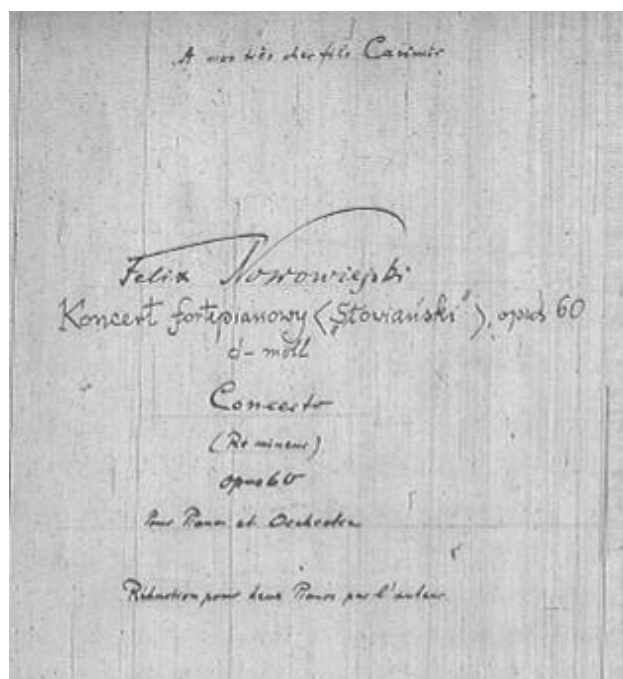 A mon très cher fils Casimir
Felix Nowowiejski
Koncert fortepianowy („Słowiański”), opus 60
d-moll
Concerto
(Re mineur)
opus 60
Pour Piano et Orchestre
Réduction pour deux Pianos par l'auteur